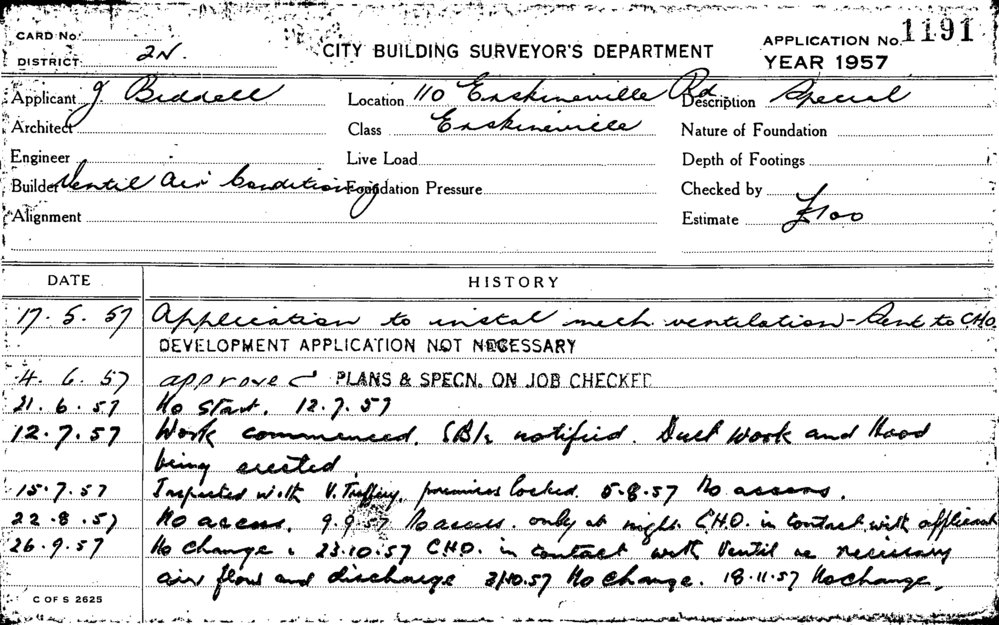 CARD No.
DISTRICT 2N.
CITY BUILDING SURVEYOR'S DEPARTMENT
APPLICATION No. 1191
YEAR 1957
Applicant J Biddell Location 110 Erskineville Rd Description Special
Architect Class Erskineville Nature of Foundation
Engineer Live Load Depth of Footings
Builder Ventil Air Conditioning Foundation Pressure Checked by
Alignment Estimate £100
DATE HISTORY
17.5.57 Application to instal mech. ventilation - Sent to C.H.O.
DEVELOPMENT APPLICATION NOT NECESSARY
4.6.57 approved PLANS & SPECN. ON JOB CHECKED
21.6.57 No start. 12.7.57
12.7.57 Work commenced. notified. Duct work and Hood
being erected.
15.7.57 Inspected with premises locked. 5.8.57 No access.
22.8.57 No access. 9.9.57 No access. only at night. C.H.O. in contact with applicant
26.9.57 No change. 23.10.57 C.H.O. in contact with Ventil re necessary
air flow and discharge 31.10.57 No change. 18.11.57 No change.
C OF S 2625